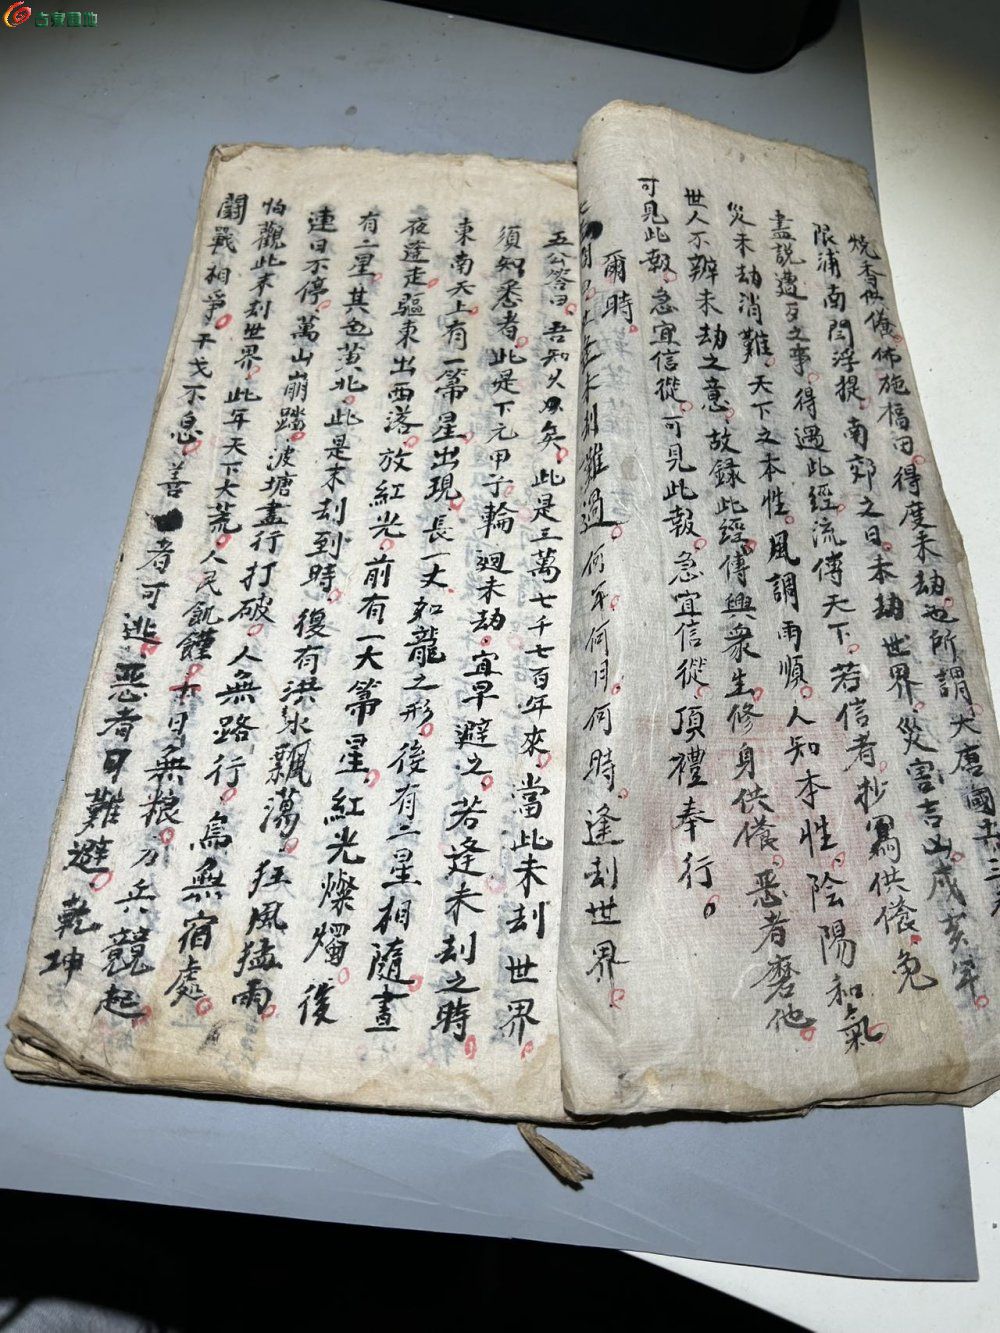 燒香供養佈施福田得度末劫也所謂大唐國
限浦南閻浮提南郊之日末劫世界災害吉凶戌亥年
盡說遭歹之事得遇此經流傳天下若信者抄寫供養免
災末劫消難天下之本性風調雨順人知本性陰陽和氣
世人不辦末劫之意故録此經傳與衆生修身供養惡者磨他
可見此報急宜信從可見此報急宜信從頂禮奉行
爾時
末刦難過何年何月何時逢刦世界
五公答曰吾知久矣此是三萬七千七百年來當此末刦世界
須知悉者此是下元甲子輪廻末劫宜早避之若逢末刦之時
東南天上有一箒星出現長一丈如龍之形後有二星相隨晝
夜逢走驅東出西落放紅光前有一大箒星紅光燦爛後
有二星其色黄北此是末刦到時復有洪水飄蕩狂風猛雨
連日不停萬山崩踏波塘盡行打破人無路行鳥無宿處
怕觀此末刦世界此年天下大荒人民飢饉十日無粮刀兵競起
鬪戰相爭干戈不息善者可逃惡者日難避乾坤
古泉园地